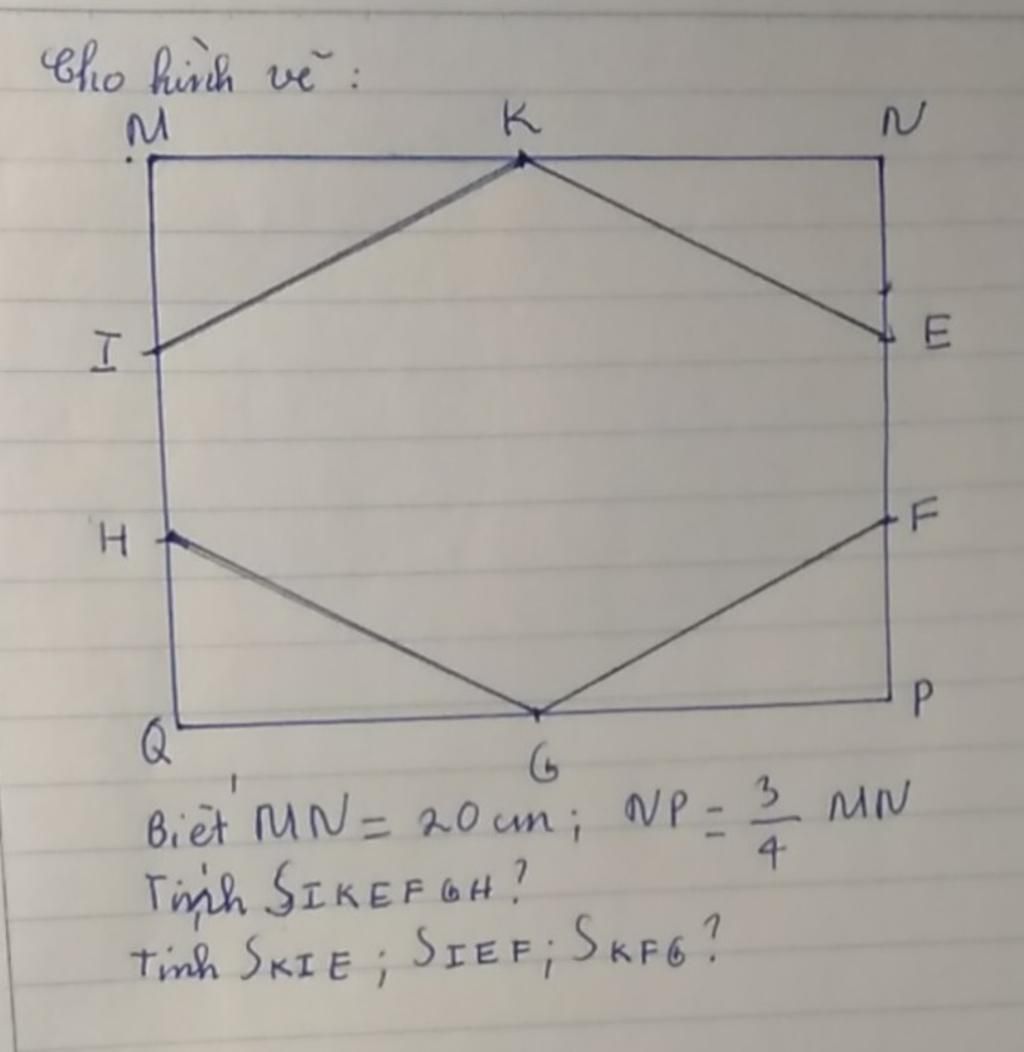 Cho hình vẽ:
M K N
I E
H F
Q G P
Biết MN = 20 cm; NP = 3/4 MN
Tính SIKEFGH?
Tính SKIE; SIEF; SKFG?